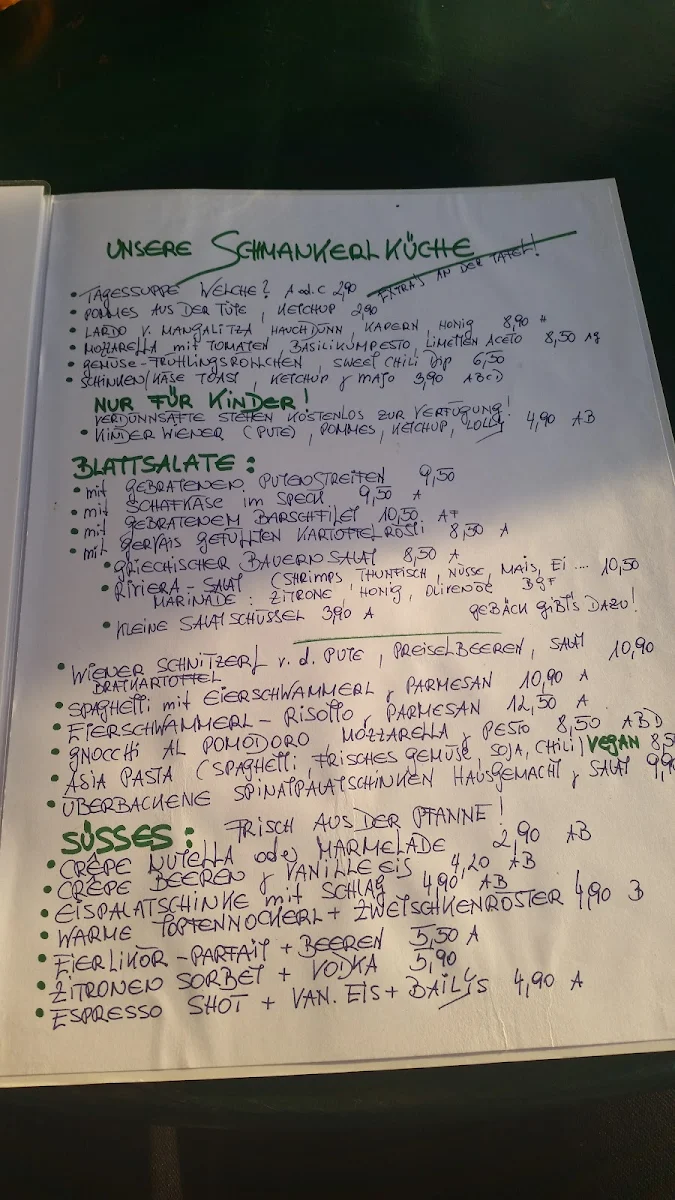 UNSERE SCHMANKERLKÜCHE
EXTRAS AN DER TAFEL!
• TAGESSUPPE WELCHE? A o d. C 2,90
• POMMES AUS DER TÜTE, KETCHUP 2,90
• LARDO V. MANGALITZA HAUCHDÜNN, KAPERN, HONIG 8,90 H
• MOZZARELLA mit TOMATEN, BASILIKUMPESTO, LIMETTEN ACETO 8,50 Ag
• GEMÜSE-FRÜHLINGSRÖLLCHEN, SWEET CHILI DIP 6,50
• SCHINKEN/KÄSE TOAST, KETCHUP & MAJO 3,90 ABCD
NUR FÜR KINDER!
VERDÜNNSÄFTE STEHEN KOSTENLOS ZUR VERFÜGUNG!
• KINDER WIENER (PUTE), POMMES, KETCHUP, LOLLY 4,90 AB
BLATTSALATE:
• mit GEBRATENEN PUTENSTREIFEN 9,50
• mit SCHAFKÄSE im SPECK 9,50 A
• mit GEBRATENEM BARSCHFILET 10,50 AF
• mit GERVAIS GEFÜLLTEN KARTOFFELRÖSTI 8,50 A
• GRIECHISCHER BAUERNSALAT 8,50 A
• RIVIERA-SALAT (SHRIMPS THUNFISCH, NÜSSE, MAIS, EI .... 10,50
MARINADE: ZITRONE, HONIG, OLIVENÖL BGF
• KLEINE SALATSCHÜSSEL 3,90 A GEBÄCK GIBT'S DAZU!
• WIENER SCHNITZERL v. d. PUTE, PREISELBEEREN, SALAT 10,90
BRATKARTOFFEL
• SPAGHETTI mit EIERSCHWAMMERL & PARMESAN 10,90 A
• EIERSCHWAMMERL-RISOTTO, PARMESAN 12,50 A
• GNOCCHI AL POMODORO, MOZZARELLA & PESTO 8,50 ABD
• ASIA PASTA (SPAGHETTI, FRISCHES GEMÜSE, SOJA, CHILI) VEGAN 8,5
• ÜBERBACKENE SPINATPALATSCHINKEN HAUSGEMACHT & SALAT 9,9
SÜSSES: FRISCH AUS DER PFANNE!
• CRÊPE NUTELLA oder MARMELADE 2,90 AB
• CRÊPE BEEREN & VANILLEEIS 4,20 AB
• EISPALATSCHINKE mit SCHLAG 4,90 AB
• WARME TOPFENNOCKERL + ZWETSCHKENRÖSTER 4,90 B
• EIERLIKÖR-PARFAIT + BEEREN 5,50 A
• ZITRONEN SORBET + VODKA 5,90
• ESPRESSO SHOT + VAN. EIS + BAILYS 4,90 A